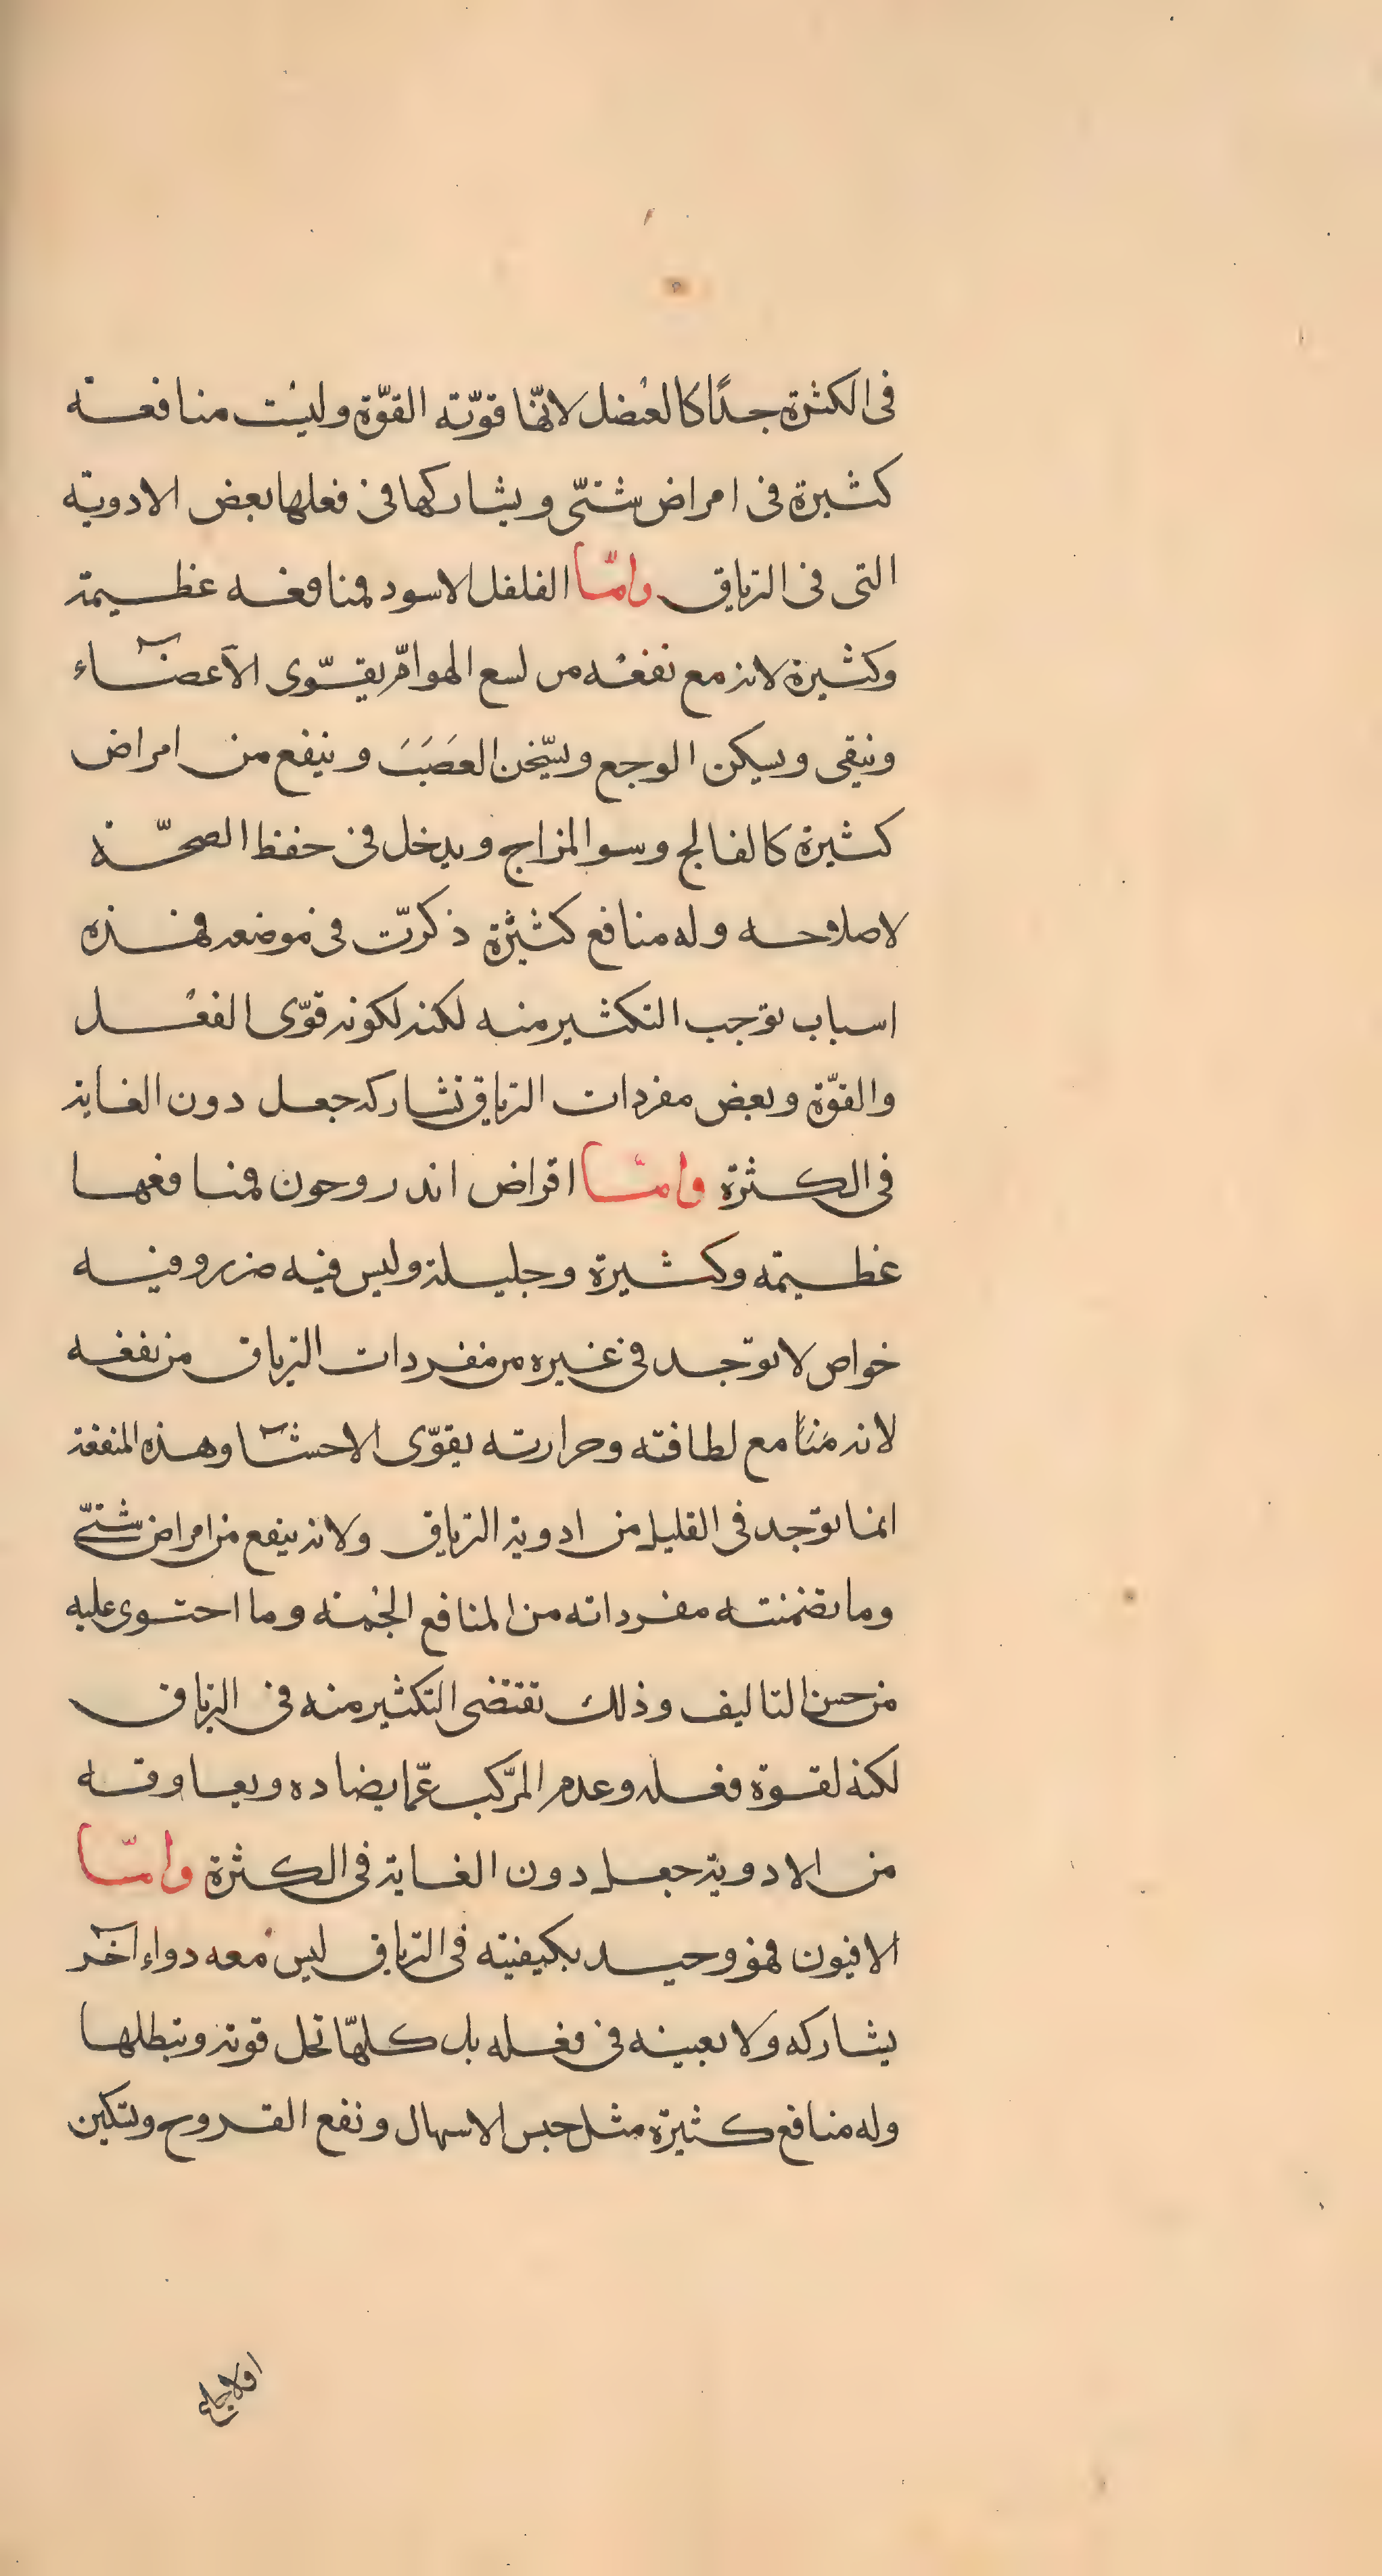 فى الكثرة جدًا كالعنصل لانّها قويّة القوّة وليست منافعة
كثيرة فى امراض شتىّ ويشاركها فى فعلها بعض الادوية
التى فى الترياق وامّا الفلفل الاسود فمنافعه عظيمة
وكثيرة لانه مع نفعه من لسع الهوامّ يقوّى الآعضآء
وينقى ويسكن الوجع ويسّخن العصَبَ وينفع من امراض
كثيرة كالفالج وسو المزاج ويدخل فى حفظ الصحّة
لاصلاحه وله منافع كثيرة ذكرّت فى موضعه فهذه
اسباب توجب التكثير منه لكنه لكونه قوّى الفعل
والقوّة وبعض مفردات الترياق تشاركه جعل دون الغاية
فى الكثرة وامّا اقراض اندروحون فمنافعها
عظيمة وكثيرة وجليلة وليس فيه ضرر وفيه
خواص لا توجد فى غيره من مفردات الترياق من نفعه
لانه مع لطافته وحرارته يقوّى الاحشآ وهذه المنفعة
انما توجد فى القليل من ادوية الترياق ولانه ينفع من امراض شتىّ
وما تضمنته مفرداته من المنافع الجمه وما احتوى عليه
من حسن التاليف وذلك تقتضى التكثير منه فى الترياق
لكنه لقوة فعله وعدم المرّكب عمّا يضاده ويعاوقه
من الادوية جعل دون الغاية فى الكثرة وامّا
الافيون فهو وحيد بكيفيته فى الترياق ليس معه دواء آخر
يشاركه ولا يعينه فى فعله بل كلهّا تحل قوته وتبطلها
وله منافع كثيرة مثل حبس الاسهال ونفع القروح وتسكين